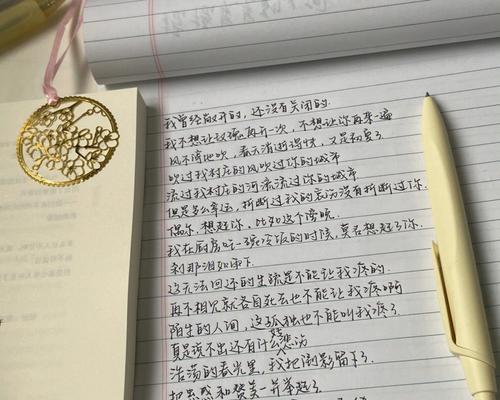 我曾经敞开的，还没有关闭的
我不想让玫瑰再开一次，不想让你再来一遍
风不停地吹，春天消逝得快，又是初夏了
吹过我村庄的风吹过你的城市
流过我村庄的河流流过你的城市
但是多么幸运，折断过我的哀伤没有折断过你
偶尔，想起你，比如这个傍晚
我在厨房吃一碗冷饭的时候，莫名想起了你
刹那泪如雨下
这无法回还的生疏是不能让我疼的
再不相见就各自死去也不能让我疼啊
陌生的人间，这孤独也不能叫我疼了
真是说不出还有什么悲伤
浩荡的春光里，我把倒影留下了
把感和赞美 并举起了